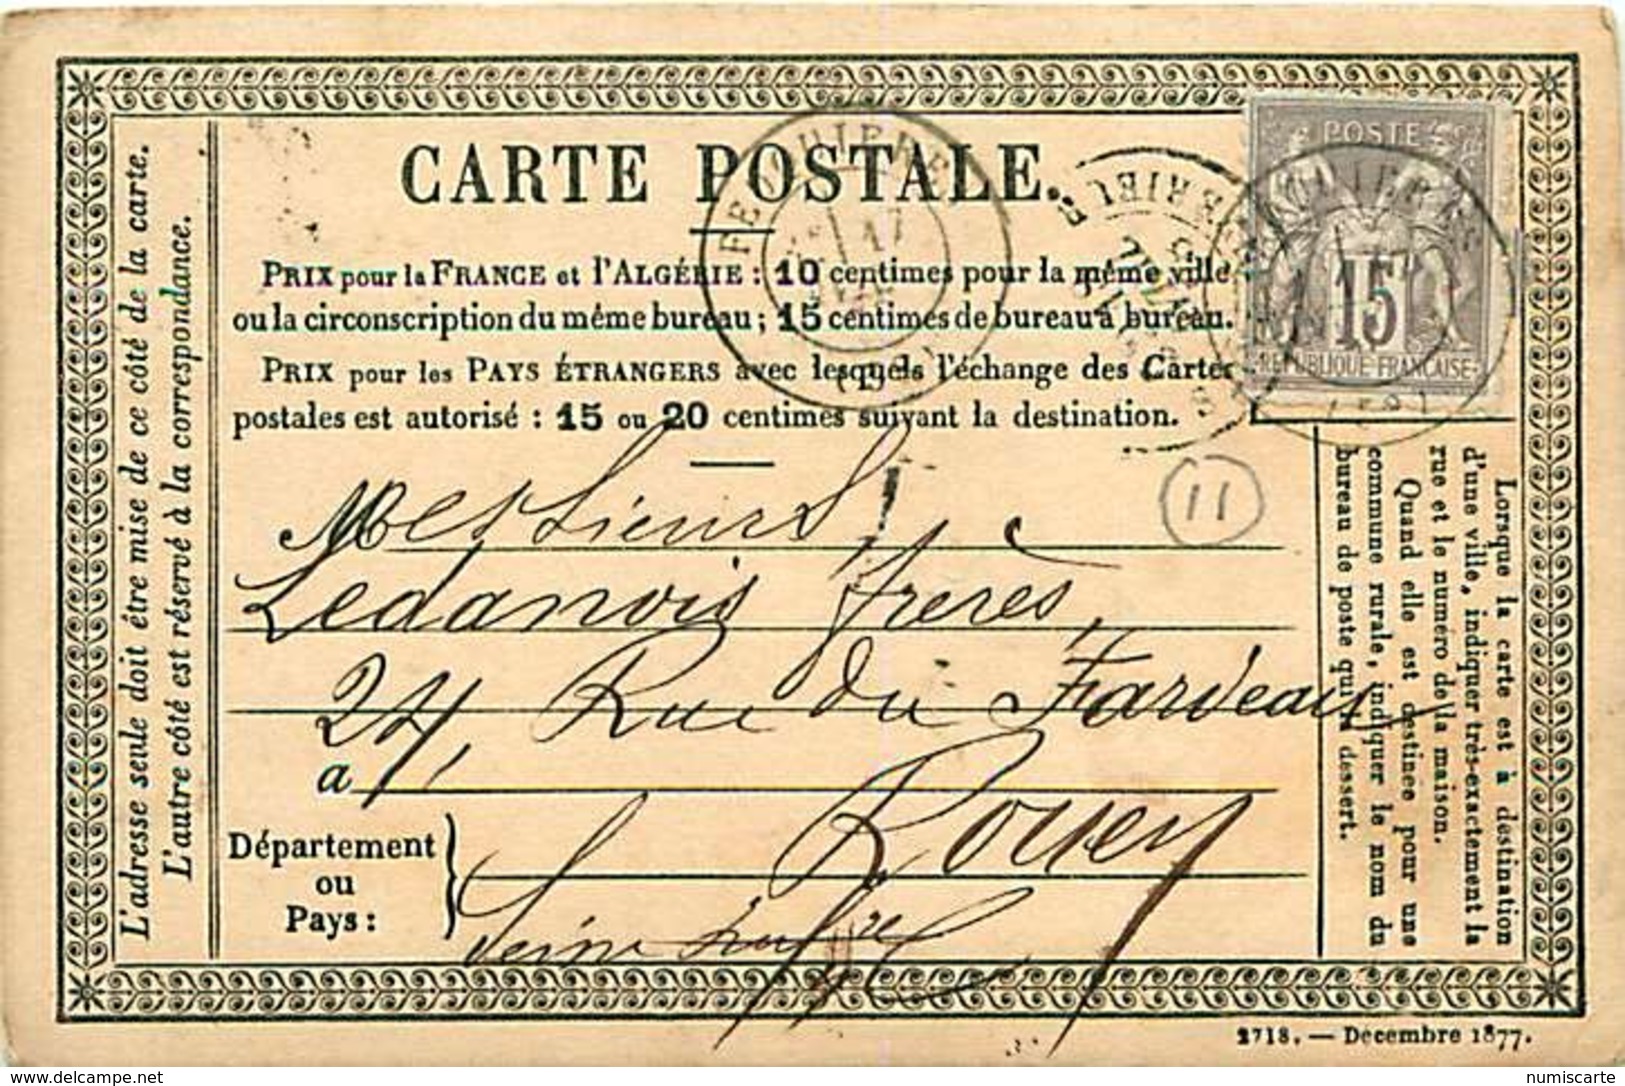 CARTE POSTALE.
PRIX pour la FRANCE et l'ALGÉRIE : 10 centimes pour la même ville
ou la circonscription du même bureau ; 15 centimes de bureau à bureau.
PRIX pour les PAYS ÉTRANGERS avec lesquels l'échange des Cartes
postales est autorisé : 15 ou 20 centimes suivant la destination.
POSTE
15
RÉPUBLIQUE FRANÇAISE
17
11
Messieurs
Ledanois frères,
24, Rue du Fardeau
à
Rouen
Département
ou
Pays :
Seine Infre
L'adresse seule doit être mise de ce côté de la carte.
L'autre côté est réservé à la correspondance.
Lorsque la carte est à destination
d'une ville, indiquer très-exactement la
rue et le numéro de la maison.
Quand elle est destinée pour une
commune rurale, indiquer le nom du
bureau de poste qui la dessert.
2718. — Décembre 1877.
delcampe.net
numiscarte